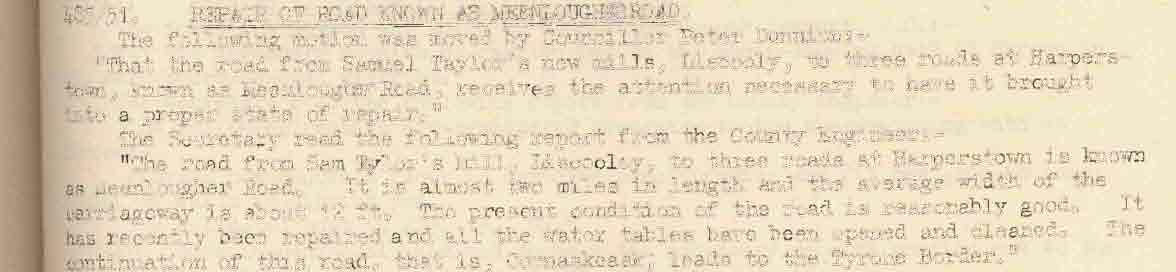 485/51. REPAIR OF ROAD KNOWN AS MEENLOUGHER ROAD.
The following motion was moved by Councillor Peter
"That the road from Samuel Taylor's new mills, Liscooly, to three roads at Harpers-
town, known as Meenlougher Road, receives the attention necessary to have it brought
into a proper state of repair."
The Secretary read the following report from the County Engineer:-
"The road from Sam Tylor's Mill, Liscooley, to three roads at Harperstown is known
as Meenlougher Road. It is almost two miles in length and the average width of the
carriageway is about 12 ft. The present condition of the road is reasonably good. It
has recently been repaired and all the water tables have been opened and cleaned. The
continuation of this road, that is, leads to the Tyrone Border."